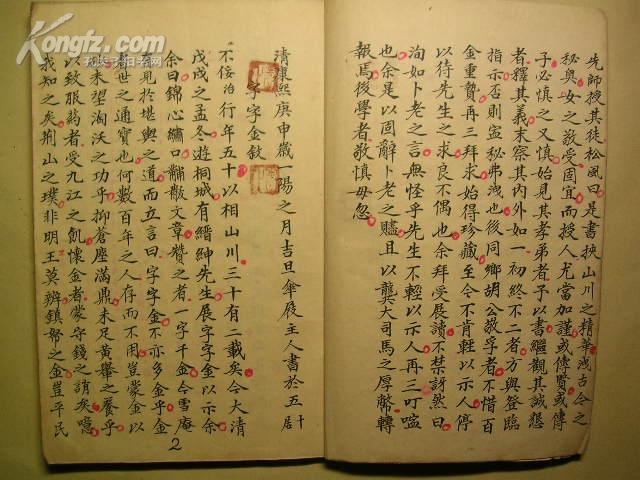 先師授其徒松風曰是書挾山川之精華洩古今之
秘奥女之敬受固宜而授人尤當加謹或傳賢或傳
子必慎之又慎始見其孝弟者予以書繼觀其誠懇
者釋其義末察其內外如一初終不二者方與登臨
指示否則宲秘弗洩也後同鄉胡公敬孚者不惜百
金重贄再三拜求始得珍藏至今不肯輕以示人停
以待先生之求良不偶也余拜受展讀不禁訝然曰
洵如卜老之言無怪乎先生不輕以示人再三叮嚀
也余是以固辭卜老之贐且以龔大司馬之厚幣轉
報焉後學者敬慎毋忽
清康熙庚申歲一陽之月吉旦傘屐主人書於五十居
字字金敘
不佞治行年五十以相山川三十有二載矣今大清
戊戌之孟冬遊桐城有縉紳先生展字字金以示余
余曰錦心繡口黼黻文章贊之者一字千金今雪庵
有見於堪輿之道而立言曰字字金不亦多金乎金
爲世之通寶也何數百年之人存而不用豈蒙金以
塵未望淘沃之功乎抑蒼塵滿鼎未足黄轝之養乎
以致服藥者受九江之飢懷金者蒙守錢之誚矣噫
我知之矣荆山之璞非明王莫辨鎮帑之金豈平民
2
Kongfz.com
孔夫子旧书网